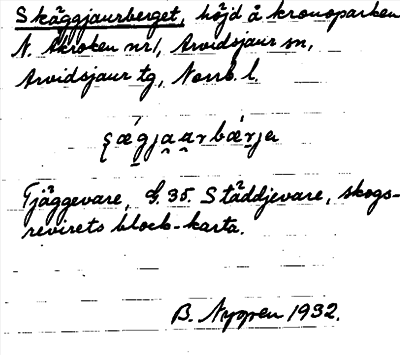 Skäggjaurberget, höjd å kronoparken
N. Akroken nr 1, Arvidsjaur sn,
Arvidsjaur tg, Norrb. l.
Tjäggevare, G. 35. Städdjevare, skogs-
revirets block-karta.
B. Nygren 1932.